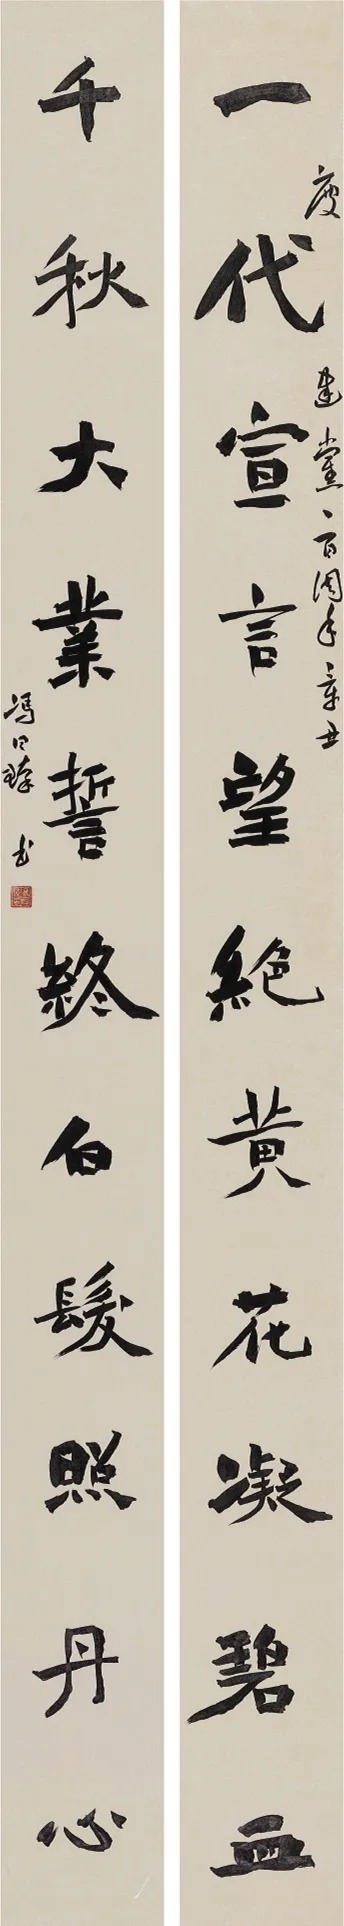 慶建黨一百周年辛丑
一代宣言望絕黃花凝碧血
千秋大業誓終白髮照丹心